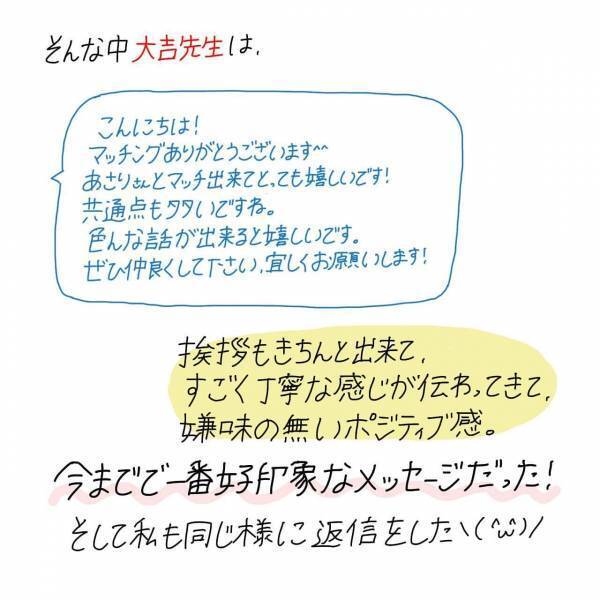 そんな中 大吉先生は、
こんにちは!
マッチングありがとうございます^^
あさりさんとマッチ出来てとっても嬉しいです!
共通点も多いですね。
色んな話が出来ると嬉しいです。
ぜひ仲良くして下さい、宜しくお願いします!
挨拶もきちんと出来て、
すごく丁寧な感じが伝わってきて、
嫌味の無いポジティブ感。
今までで一番好印象なメッセージだった!
そして私も同じ様に返信をしたヽ(^ω^)ノ